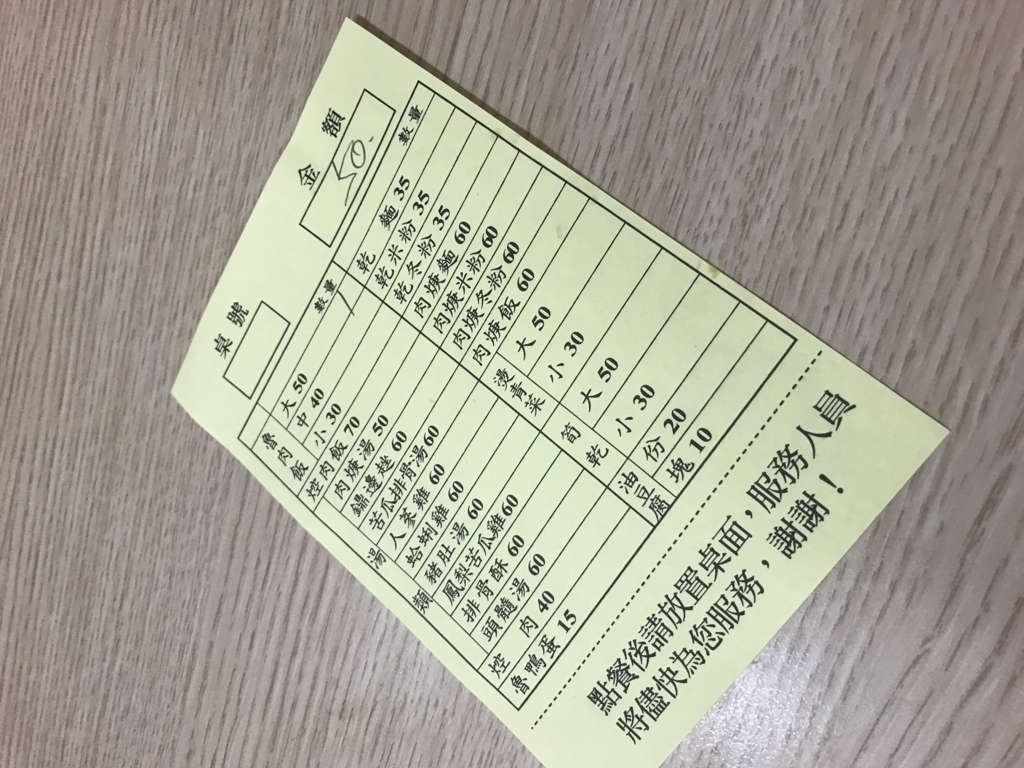 桌號
金額 50.
數量
魯肉飯 大 50 1
中 40
小 30
焢肉飯 70
湯類 肉焿湯 50
鱻邊趖 60
苦瓜排骨湯 60
人蔘雞 60
蛤蜊雞 60
豬肚湯 60
鳳梨苦瓜雞 60
排骨酥 60
頭髓湯 60
焢肉 40
魯鴨蛋 15
數量
乾麵 35
乾米粉 35
乾冬粉 35
肉焿麵 60
肉焿米粉 60
肉焿冬粉 60
肉焿飯 60
燙青菜 大 50
小 30
筍乾 大 50
小 30
油豆腐 份 20
塊 10
點餐後請放置桌面，服務人員
將儘快為您服務，謝謝！